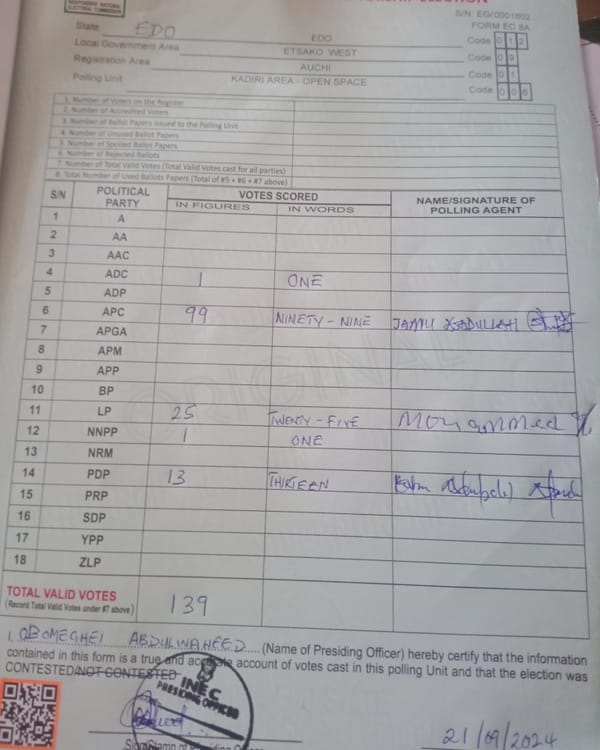 INDEPENDENT NATIONAL
ELECTORAL COMMISSION
ELECTION
S/N: EG/0001802
FORM EC 8A
State EDO EDO Code 0 1 2
Local Government Area ETSAKO WEST Code 0 9
Registration Area AUCHI Code 0 1
Polling Unit KADIRI AREA - OPEN SPACE Code 0 0 6
1. Number of Voters on the Register
2. Number of Accredited Voters
3. Number of Ballot Papers issued to the Polling Unit
4. Number of Unused Ballot Papers
5. Number of Spoiled Ballot Papers
6. Number of Rejected Ballots
7. Number of Total Valid Votes (Total Valid Votes cast for all parties)
8. Total Number of Used Ballots Papers (Total of #5 + #6 + #7 above)
S/N POLITICAL PARTY VOTES SCORED NAME/SIGNATURE OF POLLING AGENT
IN FIGURES IN WORDS
1 A
2 AA
3 AAC
4 ADC 1 ONE
5 ADP
6 APC 99 NINETY-NINE JAMIU
7 APGA
8 APM
9 APP
10 BP
11 LP 25 TWENTY-FIVE Mohammed
12 NNPP 1 ONE
13 NRM
14 PDP 13 THIRTEEN
15 PRP
16 SDP
17 YPP
18 ZLP
ORIGINAL
TOTAL VALID VOTES 139
(Record Total Valid Votes under #7 above)
I, OBOMEGHEI ABDULWAHEED .... (Name of Presiding Officer) hereby certify that the information
contained in this form is a true and accurate account of votes cast in this polling Unit and that the election was
CONTESTED/NOT CONTESTED
INEC
PRESIDING OFFICER
21/09/2024